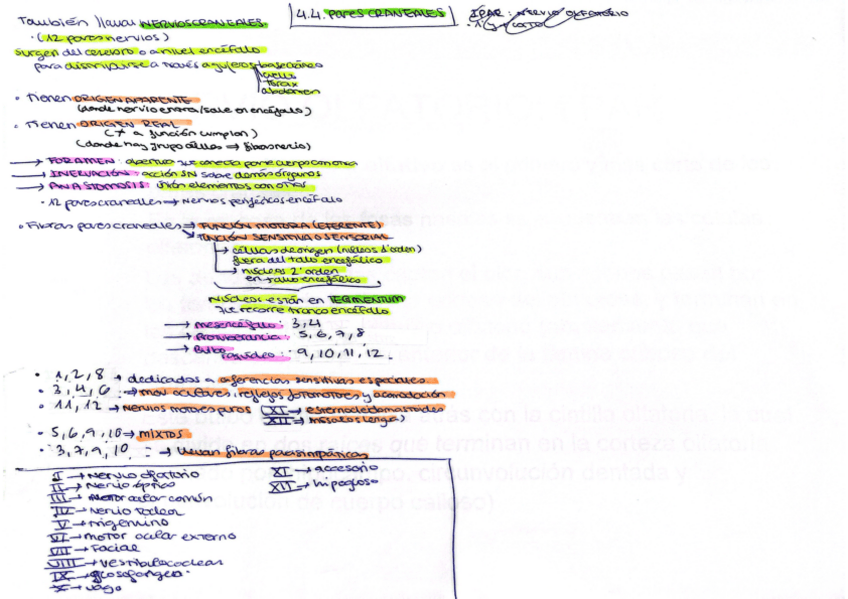 4.4. PARES CRANEALES
I PAR: NERVIO OLFATORIO
También llaman NERVIOS CRANEALES
· (12 pares nervios)
surgen del cerebro o a nivel encéfalo
para distribuirse a través agujeros base cráneo
cuello
tórax
abdomen
· Tienen ORIGEN APARENTE
(donde nervio entra/sale en encéfalo)
· Tienen ORIGEN REAL
(≠ a función cumplan)
(donde hay grupo células ⇒ fibras nervio)
→ FORAMEN: abertura conecta parte cuerpo con otra
→ INERVACIÓN: acción SN sobre demás órganos
→ ANASTOMOSIS: unión elementos con otros
· 12 pares craneales → nervios periféricos encéfalo
· Fibras pares craneales ⇒ FUNCIÓN MOTORA (EFERENTE)
↘ FUNCIÓN SENSITIVA O SENSORIAL
→ células de origen (núcleos 1º orden)
fuera del tallo encefálico
→ núcleos 2º orden
en tallo encefálico
Núcleos están en TEGMENTUM
recorre tronco encéfalo
→ Mesencéfalo: 3, 4
→ Protuberancia: 5, 6, 7, 8
→ Bulbo raquídeo: 9, 10, 11, 12
· 1, 2, 8 → dedicados a aferencias sensitivas especiales
· 3, 4, 6 → mov oculares, reflejos fotomotores y acomodación
· 11, 12 → nervios motores puros XI → esternocleidomastoideo
XII → músculos lengua)
· 5, 6, 9, 10 → MIXTOS
· 3, 7, 9, 10 → llevan fibras parasimpáticas
I → Nervio olfatorio
II → Nervio óptico
III → Motor ocular común
IV → Nervio troclear
V → Trigémino
VI → motor ocular externo
VII → Facial
VIII → Vestibulococlear
IX → glosofaríngeo
X → vago
XI → accesorio
XII → hipogloso